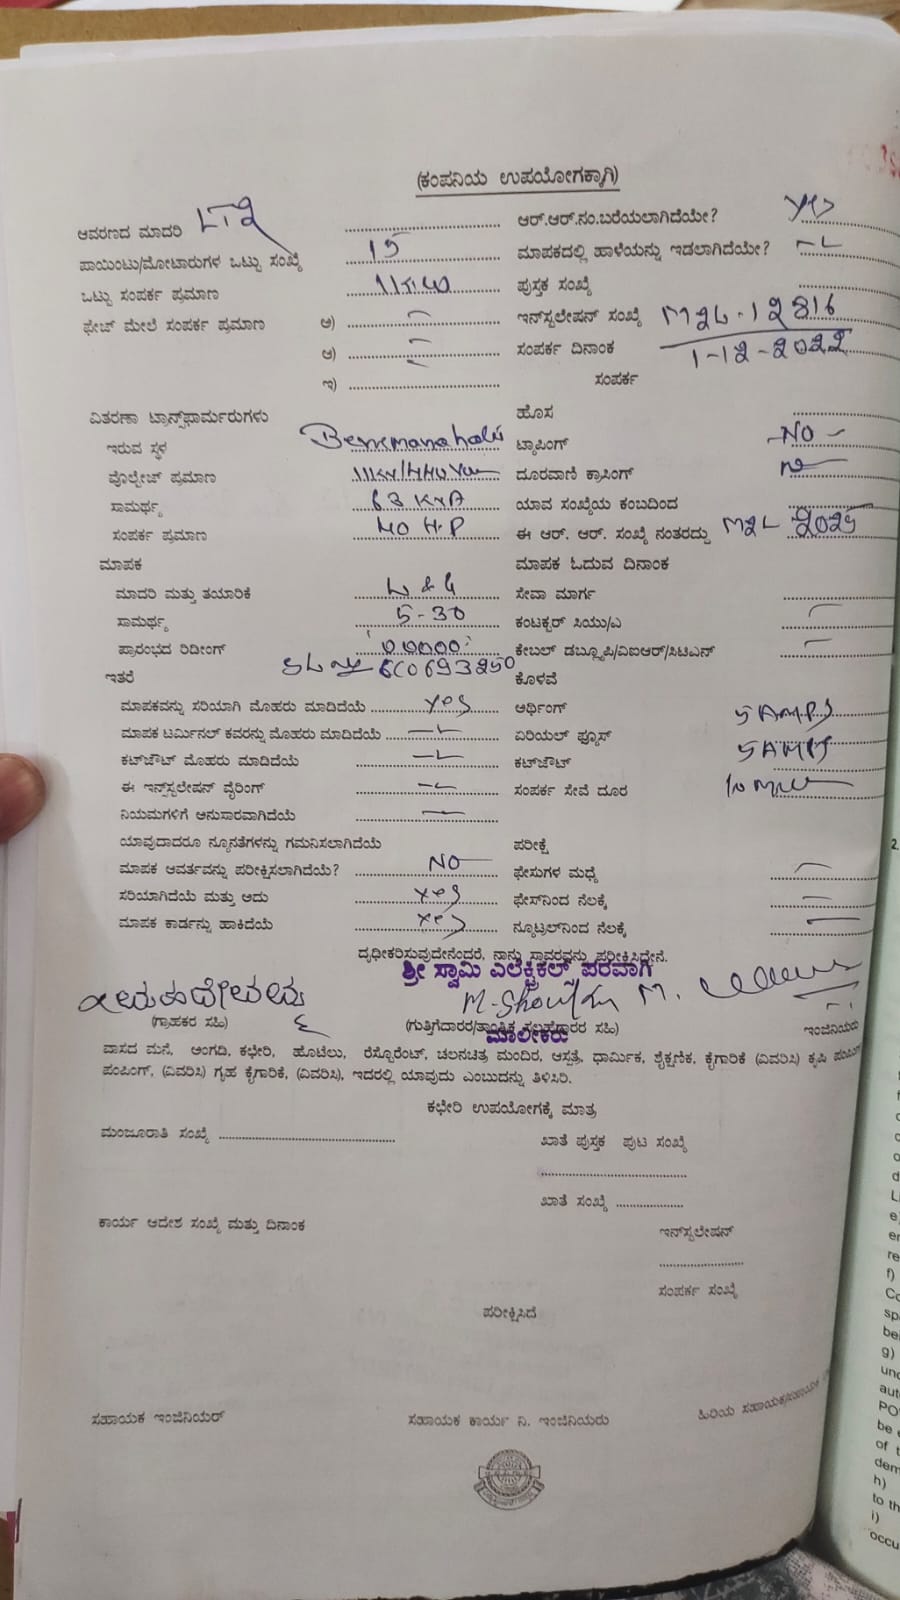 (ಕಂಪನಿಯ ಉಪಯೋಗಕ್ಕಾಗಿ)
ಆವರಣದ ಮಾದರಿ LT2 ಆರ್.ಆರ್.ನಂ.ಬರೆಯಲಾಗಿದೆಯೇ? yes
ಪಾಯಿಂಟು/ಮೋಟಾರುಗಳ ಒಟ್ಟು ಸಂಖ್ಯೆ 15 ಮಾಪಕದಲ್ಲಿ ಹಾಳೆಯನ್ನು ಇಡಲಾಗಿದೆಯೇ?
ಒಟ್ಟು ಸಂಪರ್ಕ ಪ್ರಮಾಣ ಪುಸ್ತಕ ಸಂಖ್ಯೆ
ಫೇಜ್ ಮೇಲೆ ಸಂಪರ್ಕ ಪ್ರಮಾಣ ಅ) ಇನ್‌ಸ್ಟಲೇಷನ್ ಸಂಖ್ಯೆ M2L-12816
ಆ) ಸಂಪರ್ಕ ದಿನಾಂಕ 1-12-2022
ಇ) ಸಂಪರ್ಕ
ವಿತರಣಾ ಟ್ರಾನ್ಸ್‌ಫಾರ್ಮರುಗಳು ಹೊಸ
ಇರುವ ಸ್ಥಳ ಟ್ಯಾಪಿಂಗ್ NO
ವೊಲ್ಟೇಜ್ ಪ್ರಮಾಣ ದೂರವಾಣಿ ಕ್ರಾಸಿಂಗ್
ಸಾಮರ್ಥ್ಯ 63 KVA ಯಾವ ಸಂಖ್ಯೆಯ ಕಂಬದಿಂದ
ಸಂಪರ್ಕ ಪ್ರಮಾಣ 40 H.P ಈ ಆರ್. ಆರ್. ಸಂಖ್ಯೆ ನಂತರದ್ದು M2L
ಮಾಪಕ ಮಾಪಕ ಓದುವ ದಿನಾಂಕ
ಮಾದರಿ ಮತ್ತು ತಯಾರಿಕೆ L & G ಸೇವಾ ಮಾರ್ಗ
ಸಾಮರ್ಥ್ಯ 5-30 ಕಂಟಕ್ಟರ್ ಸಿಯು/ಎ
ಪ್ರಾರಂಭದ ರಿಡಿಂಗ್ ಕೇಬಲ್ ಡಬ್ಲ್ಯೂಪಿ/ವಿಐಆರ್/ಸಿಟಿಎನ್
ಇತರೆ ಕೊಳವೆ
ಮಾಪಕವನ್ನು ಸರಿಯಾಗಿ ಮೊಹರು ಮಾಡಿದೆಯೆ yes ಆರ್ಥಿಂಗ್ 5 AMPS
ಮಾಪಕ ಟರ್ಮಿನಲ್ ಕವರನ್ನು ಮೊಹರು ಮಾಡಿದೆಯೆ ಏರಿಯಲ್ ಫ್ಯೂಸ್ 5 AMPS
ಕಟ್‌ಔಟ್ ಮೊಹರು ಮಾಡಿದೆಯೆ ಕಟ್‌ಔಟ್
ಈ ಇನ್ಸ್‌ಸ್ಟಲೇಷನ್ ವೈರಿಂಗ್ ಸಂಪರ್ಕ ಸೇವೆ ದೂರ
ನಿಯಮಗಳಿಗೆ ಅನುಸಾರವಾಗಿದೆಯೆ
ಯಾವುದಾದರೂ ನ್ಯೂನತೆಗಳನ್ನು ಗಮನಿಸಲಾಗಿದೆಯೆ ಪರೀಕ್ಷೆ
ಮಾಪಕ ಆವರ್ತವನ್ನು ಪರೀಕ್ಷಿಸಲಾಗಿದೆಯೆ? NO ಫೇಸುಗಳ ಮಧ್ಯೆ
ಸರಿಯಾಗಿದೆಯೆ ಮತ್ತು ಅದು yes ಫೇಸ್‌ನಿಂದ ನೆಲಕ್ಕೆ
ಮಾಪಕ ಕಾರ್ಡನ್ನು ಹಾಕಿದೆಯೆ yes ನ್ಯೂಟ್ರಲ್‌ನಿಂದ ನೆಲಕ್ಕೆ
ದೃಢೀಕರಿಸುವುದೇನೆಂದರೆ, ನಾನು ಸ್ಥಾವರವನ್ನು ಪರೀಕ್ಷಿಸಿದ್ದೇನೆ.
ಶ್ರೀ ಸ್ವಾಮಿ ಎಲೆಕ್ಟ್ರಿಕಲ್ಸ್ ಪರವಾಗಿ
(ಗ್ರಾಹಕರ ಸಹಿ) (ಗುತ್ತಿಗೆದಾರರ/ತಾಂತ್ರಿಕ ಸಲಹೆಗಾರರ ಸಹಿ) ಇಂಜಿನಿಯರು
ಮಾಲೀಕರು
ವಾಸದ ಮನೆ, ಅಂಗಡಿ, ಕಛೇರಿ, ಹೊಟೆಲು, ರೆಸ್ಟೊರೆಂಟ್, ಚಲನಚಿತ್ರ ಮಂದಿರ, ಆಸ್ಪತ್ರೆ, ಧಾರ್ಮಿಕ, ಶೈಕ್ಷಣಿಕ, ಕೈಗಾರಿಕೆ (ವಿವರಿಸಿ) ಕೃಷಿ ಪಂಪಿಂಗ್
ಪಂಪಿಂಗ್, (ವಿವರಿಸಿ) ಗೃಹ ಕೈಗಾರಿಕೆ, (ವಿವರಿಸಿ), ಇದರಲ್ಲಿ ಯಾವುದು ಎಂಬುದನ್ನು ತಿಳಿಸಿರಿ.
ಕಛೇರಿ ಉಪಯೋಗಕ್ಕೆ ಮಾತ್ರ
ಮಂಜೂರಾತಿ ಸಂಖ್ಯೆ ಖಾತೆ ಪುಸ್ತಕ ಪುಟ ಸಂಖ್ಯೆ
ಖಾತೆ ಸಂಖ್ಯೆ
ಕಾರ್ಯ ಆದೇಶ ಸಂಖ್ಯೆ ಮತ್ತು ದಿನಾಂಕ ಇನ್‌ಸ್ಟಲೇಷನ್
ಸಂಪರ್ಕ ಸಂಖ್ಯೆ
ಪರೀಕ್ಷಿಸಿದೆ
ಸಹಾಯಕ ಇಂಜಿನಿಯರ್ ಸಹಾಯಕ ಕಾರ್ಯ ನಿ. ಇಂಜಿನಿಯರು ಹಿರಿಯ ಸಹಾಯಕ/ಸಹಾಯಕ